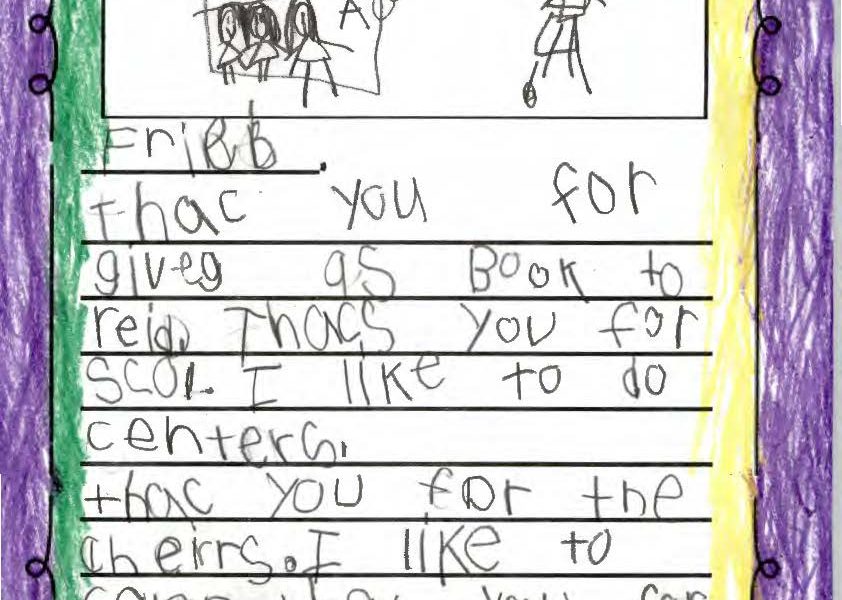 A
FriBb.
thac you for
giveg as Book to
reid. Thacs you for
Scol. I like to do
centers.
thac you for the
cherrs. I like to
you for